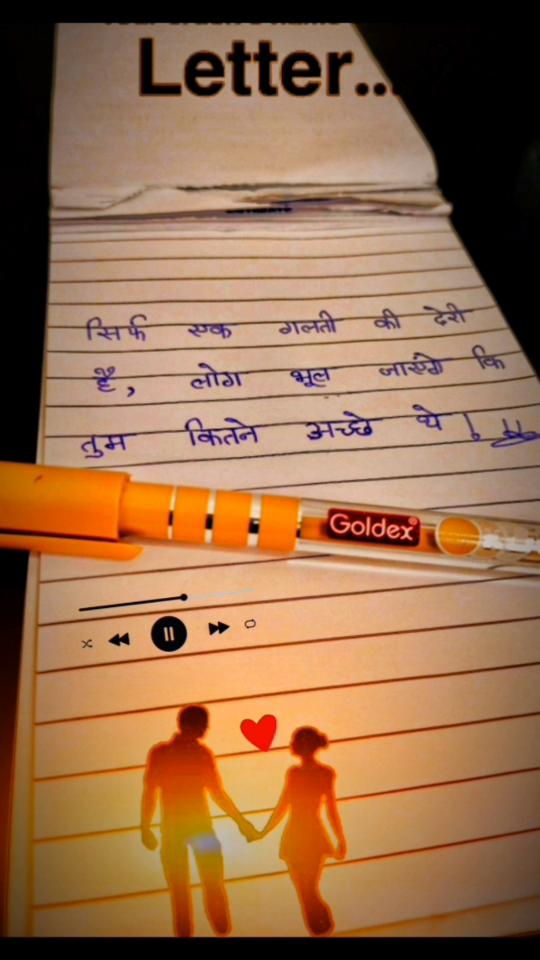 Letter...
सिर्फ एक गलती की देरी
है, लोग भूल जाएंगे कि
तुम कितने अच्छे थे !
Goldex®